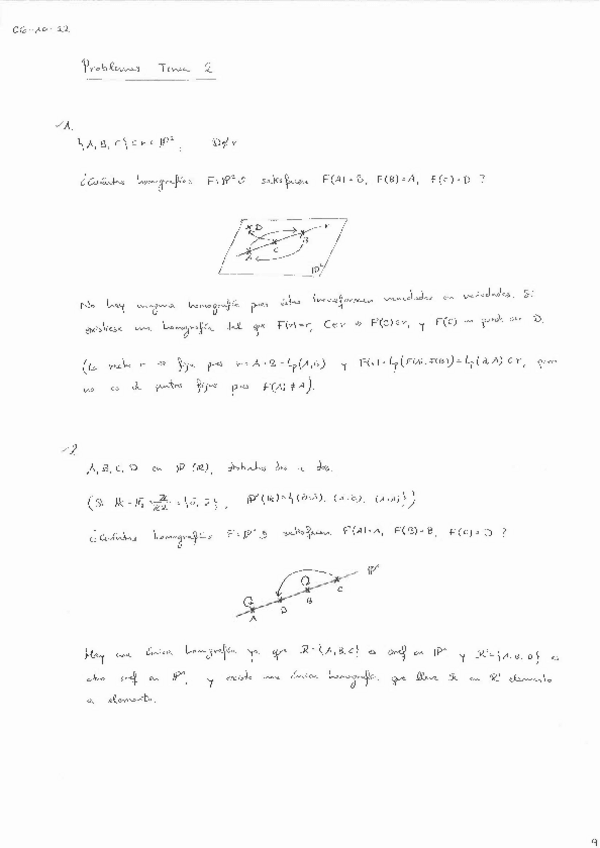 06-10-22
Problemas Tema 2
✓1.
{A, B, C} ⊂ r ⊂ ℙ², D ∉ r
¿Cuántas homografías F: ℙ² ↺ satisfacen F(A) = B, F(B) = A, F(C) = D ?
D r
A C B
ℙ²
No hay ninguna homografía pues éstas transforman variedades en variedades. Si
existiese una homografía tal que F(r) = r, C ∈ r ⇒ F(C) ∈ r, y F(C) no puede ser D.
(La recta r es fija pues r = A + B = Lp(A, B) y F(r) = Lp(F(A), F(B)) = Lp(B, A) ⊂ r, pero
no es de puntos fijos pues F(A) ≠ A).
✓2.
A, B, C, D en ℙ¹(K), distintos dos a dos.
¿Cuántas homografías F: ℙ¹ ↺ satisfacen F(A) = A, F(B) = B, F(C) = D ?
ℙ¹
A D B C
Hay una única homografía ya que R = {A, B, C} es sref en ℙ¹ y R' = {A, B, D} es
otro sref en ℙ¹, y existe una única homografía que lleve R en R' elemento
a elemento.
9